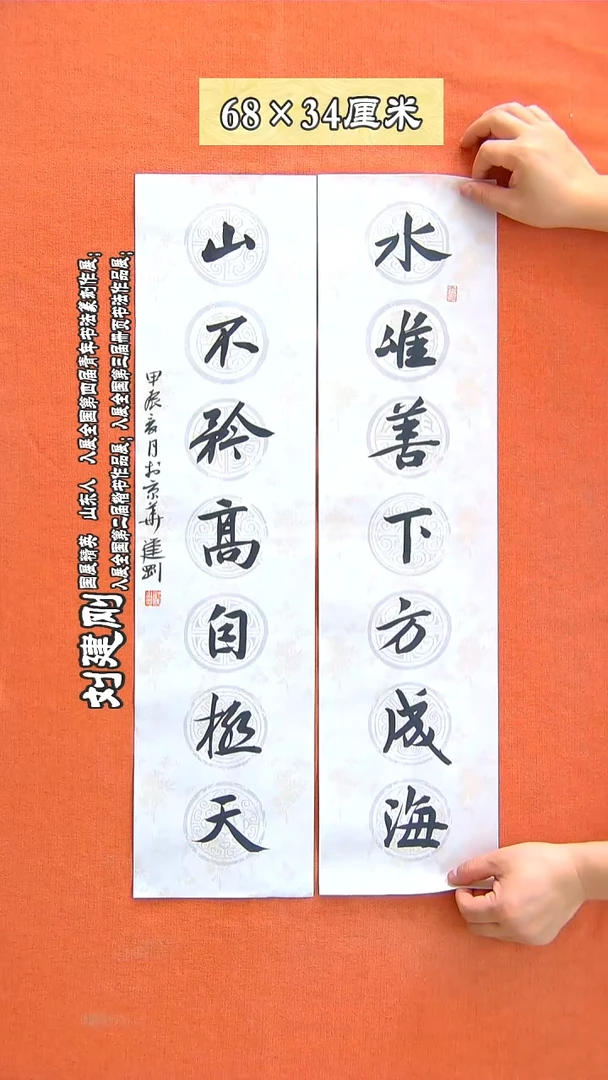 68×34厘米
水惟善下方成海
山不矜高自極天
甲辰亥月於京華 建剛
刘建刚 国展精英 山东人 入展全国第四届青年书法篆刻作展；
入展全国第二届楷书作品展；入展全国第三届册页书法作品展；